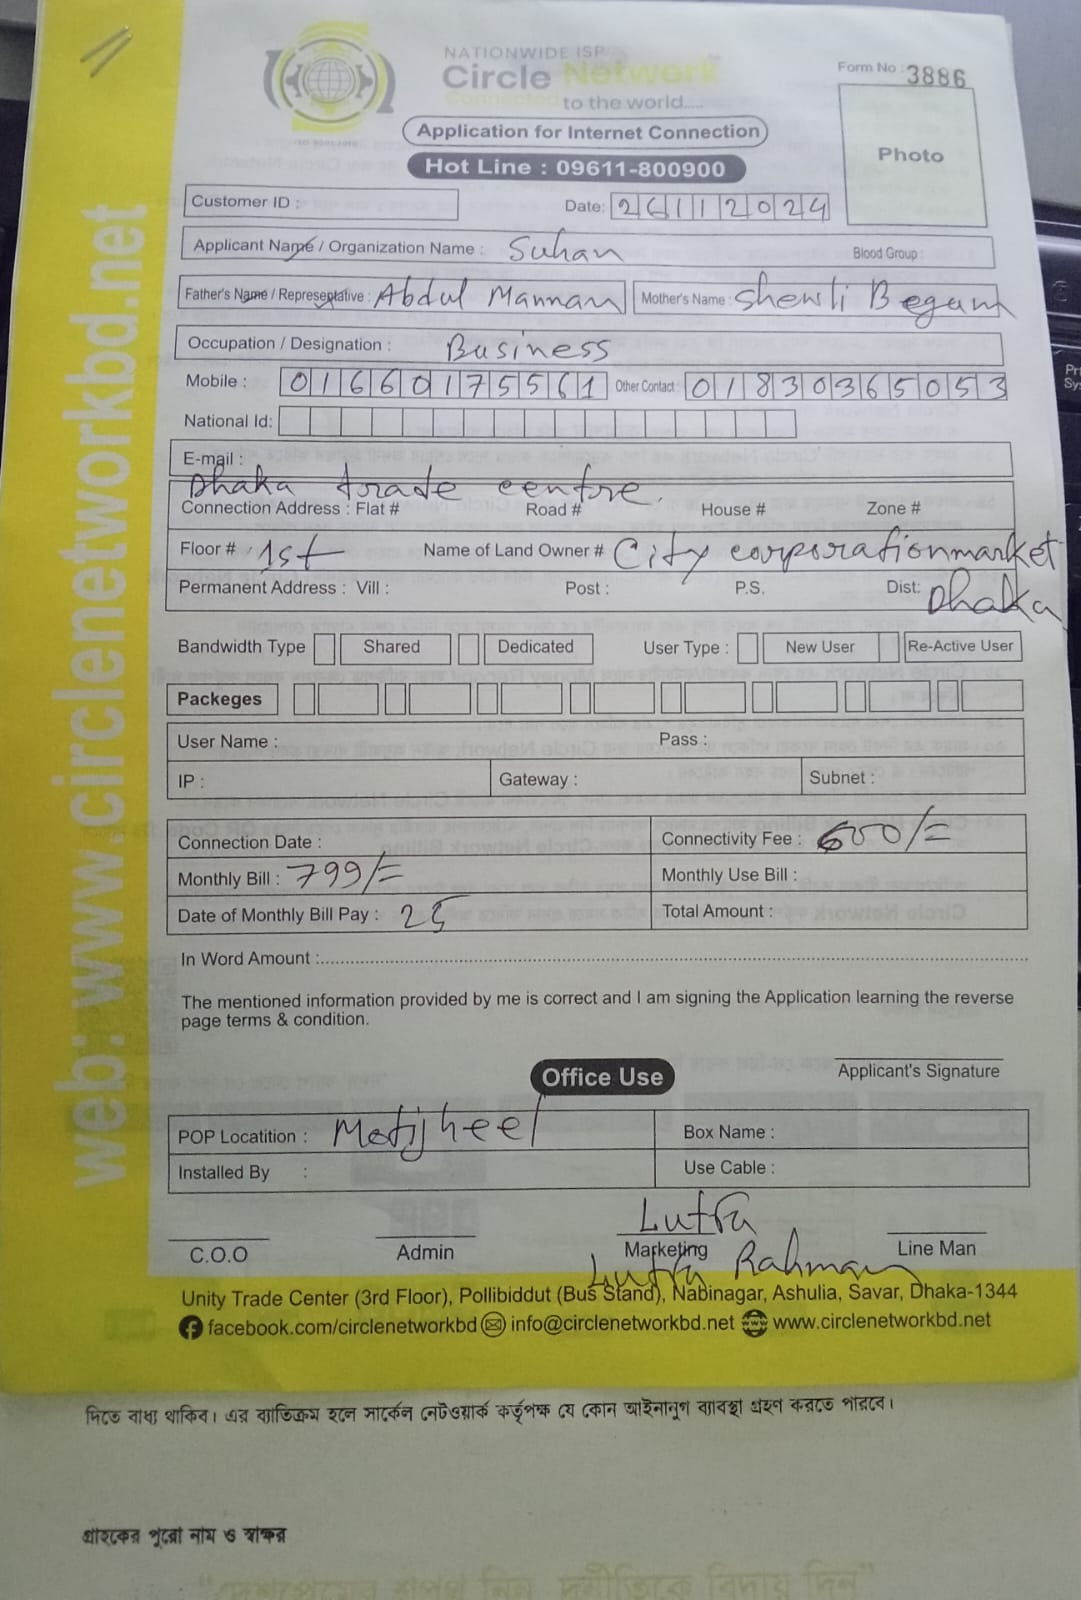 NATIONWIDE ISP
Circle Network
Connected to the world.....
Form No : 3886
Application for Internet Connection
Photo
Hot Line : 09611-800900
Customer ID :
Date: 26112024
Applicant Name / Organization Name : Suhan
Blood Group :
Father's Name / Represetative : Abdul Mannan
Mother's Name : Shewli Begum
Occupation / Designation : Business
Mobile : 01660175561 Other Contact : 01830365053
National Id:
E-mail :
Dhaka trade centre.
Connection Address : Flat # Road # House # Zone #
Floor # 1st Name of Land Owner # City corporationmarket
Permanent Address : Vill : Post : P.S. Dist: Dhaka
Bandwidth Type Shared Dedicated User Type : New User Re-Active User
Packeges
User Name : Pass :
IP : Gateway : Subnet :
Connection Date : Connectivity Fee : 600/=
Monthly Bill : 799/= Monthly Use Bill :
Date of Monthly Bill Pay : 25 Total Amount :
In Word Amount :
The mentioned information provided by me is correct and I am signing the Application learning the reverse
page terms & condition.
Applicant's Signature
Office Use
POP Locatition : Motijheel Box Name :
Installed By : Use Cable :
Lutfa
C.O.O Admin Marketing Line Man
Lutfa Rahman
Unity Trade Center (3rd Floor), Pollibiddut (Bus Stand), Nabinagar, Ashulia, Savar, Dhaka-1344
facebook.com/circlenetworkbd info@circlenetworkbd.net www.circlenetworkbd.net
web: www.circlenetworkbd.net
দিতে বাধ্য থাকিব। এর ব্যতিক্রম হলে সার্কেল নেটওয়ার্ক কর্তৃপক্ষ যে কোন আইনানুগ ব্যাবস্থা গ্রহণ করতে পারবে।
গ্রাহকের পুরো নাম ও স্বাক্ষর
"দেশপ্রেমের শপথ নিন, দুর্নীতিকে বিদায় দিন"